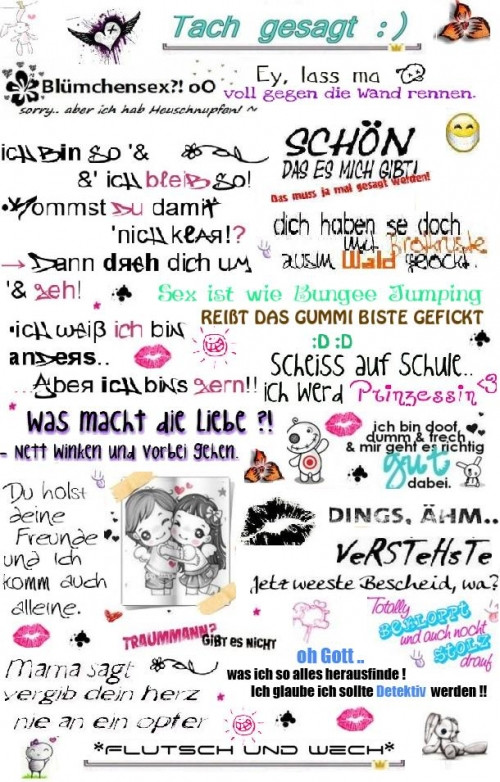 Tach gesagt :)
Blümchensex?! oO
sorry.. aber ich hab Heuschnupfen! ~
Ey, lass ma
voll gegen die Wand rennen.
SCHÖN
DAS ES MICH GIBT!
Das muss ja mal gesagt werden!
ich bin so '&
&' ich bleib so!
Kommst du damit
'nich klar!?
→ Dann dreh dich um
'& geh!
dich haben se doch
mit Brotkruste
ausm Wald gelockt.
Sex ist wie Bungee Jumping
REIßT DAS GUMMI BISTE GEFICKT
:D :D
•ich weiß ich bin
anders..
...Aber ich bins gern!!
Scheiss auf Schule..
ich werd Prinzessin <3
Was macht die Liebe ?!
- Nett winken und vorbei gehen.
ich bin doof,
dumm & frech
& mir geht es richtig
gut
dabei.
Du holst
deine
Freunde
und ich
komm auch
alleine.
DINGS, ÄHM..
VeRSTeHsTe
Jetz weeste Bescheid, wa?
Totally
BEKLOPPT
und auch noch
STOLZ
drauf
TRAUMMANN?
GIBT ES NICHT
oh Gott ..
was ich so alles herausfinde !
Ich glaube ich sollte Detektiv werden !!
Mama sagt
vergib dein herz
nie an ein opfer
*FLUTSCH UND WECH*